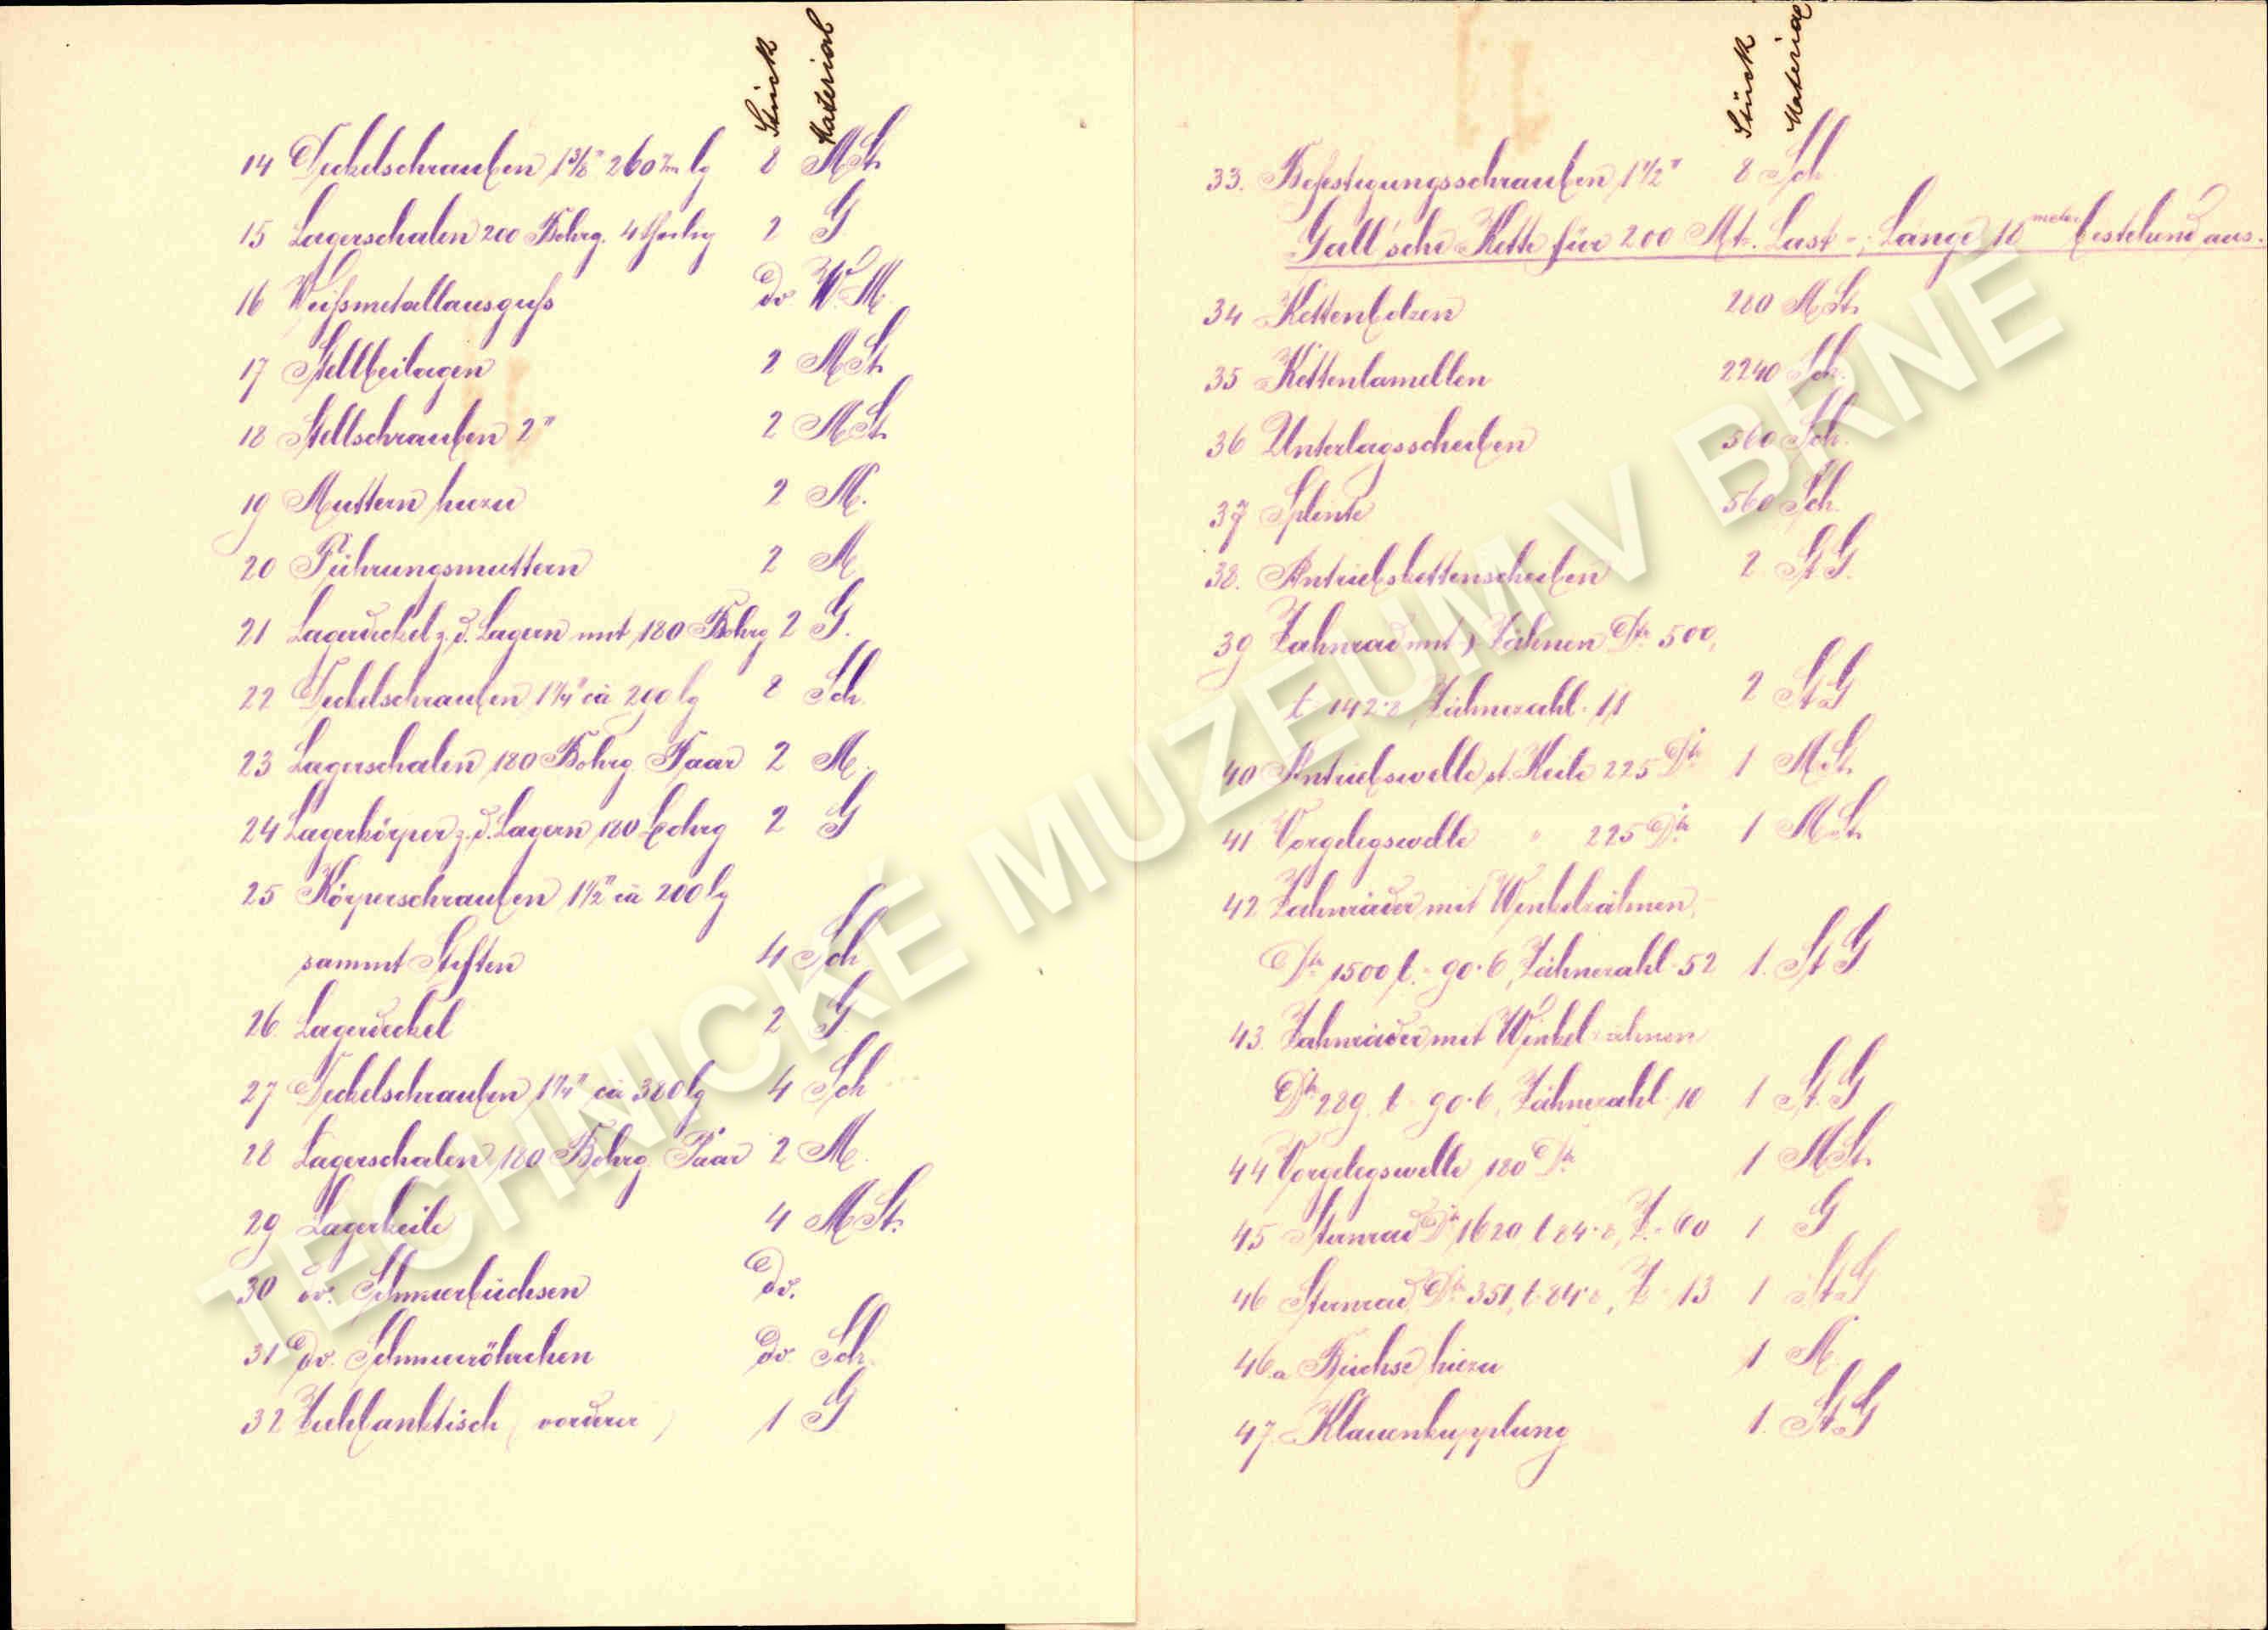 Stück Material
14 Deckelschrauben 1 3/8" 260 m/m lg 8 M St.
15 Lagerschalen 200 Bohrg. 4 theilig 2 G
16 Weißmetallausguß do W. M.
17 Stellbeilagen 2 M St.
18 Stellschrauben 2" 2 M St.
19 Muttern hiezu 2 M.
20 Führungsmuttern 2 M
21 Lagerdeckel z. d. Lagern mit 180 Bohrg 2 G.
22 Deckelschrauben 1 1/4" ca 290 lg 8 Sch.
23 Lagerschalen 180 Bohrg. Paar 2 M.
24 Lagerkörper z. d. Lagern 180 Bohrg 2 G
25 Körperschrauben 1 1/2" ca 200 lg
sammt Stiften 4 Sch
26. Lagerdeckel 2 G
27 Deckelschrauben 1 1/4" ca 380 lg 4 Sch
28 Lagerschalen 180 Bohrg. Paar 2 M.
29 Lagerkeile 4 M St.
30 do. Schmierbüchsen do.
31 do. Schmierröhrchen do. Sch.
32 Ziehbanktisch (vorderer) 1 G
Stück Material
33. Befestigungsschrauben 1 1/2" 8 Sch
Gall'sche Kette für 200 Mt. Last -; Länge 10 meter bestehend aus.
34 Kettenbolzen 280 M St.
35 Kettenlamellen 2240 Sch.
36 Unterlagsscheiben 560 Sch.
37 Splinte 560 Sch.
38. Antriebskettenscheiben 2 St G.
39 Zahnrad mit Zähnen Dtr 500,
t 142·8, Zähnezahl 11 2 St G
40 Antriebswelle s. Keile 225 Dtr 1 M St.
41 Vorgelegswelle " 225 Dtr 1 M St.
42 Zahnräder mit Winkelzähnen,
Dtr 1500 t. = 90·6, Zähnezahl 52 1. St G
43. Zahnräder mit Winkelzähnen
Dtr 289 t = 90·6, Zähnezahl 10 1 St. G
44 Vorgelegswelle 180 Dtr 1 M St.
45 Stirnrad Dtr 1620, t 84·8, Z. = 60 1 G
46 Stirnrad Dtr 351, t 84·8, Z = 13 1 St G
46.a Büchse hiezu 1 M.
47. Klauenkupplung 1. St. G
TECHNICKÉ MUZEUM V BRNE